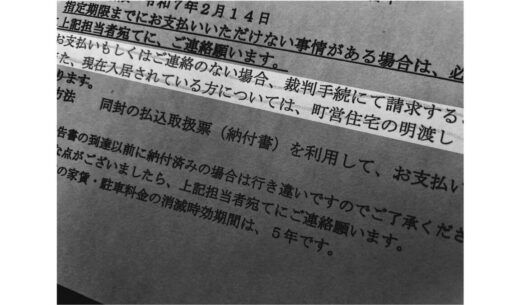 令和7年2月14日
指定期限までにお支払いいただけない事情がある場合は、必
上記担当者宛てに、ご連絡願います。
お支払いもしくはご連絡のない場合、裁判手続にて請求する
た、現在入居されている方については、町営住宅の明渡し
ります。
方法 同封の払込取扱票（納付書）を利用して、お支払い
告書の到達以前に納付済みの場合は行き違いですのでご了承くださ
な点がございましたら、上記担当者宛てにご連絡願います。
の家賃・駐車料金の消滅時効期間は、5年です。